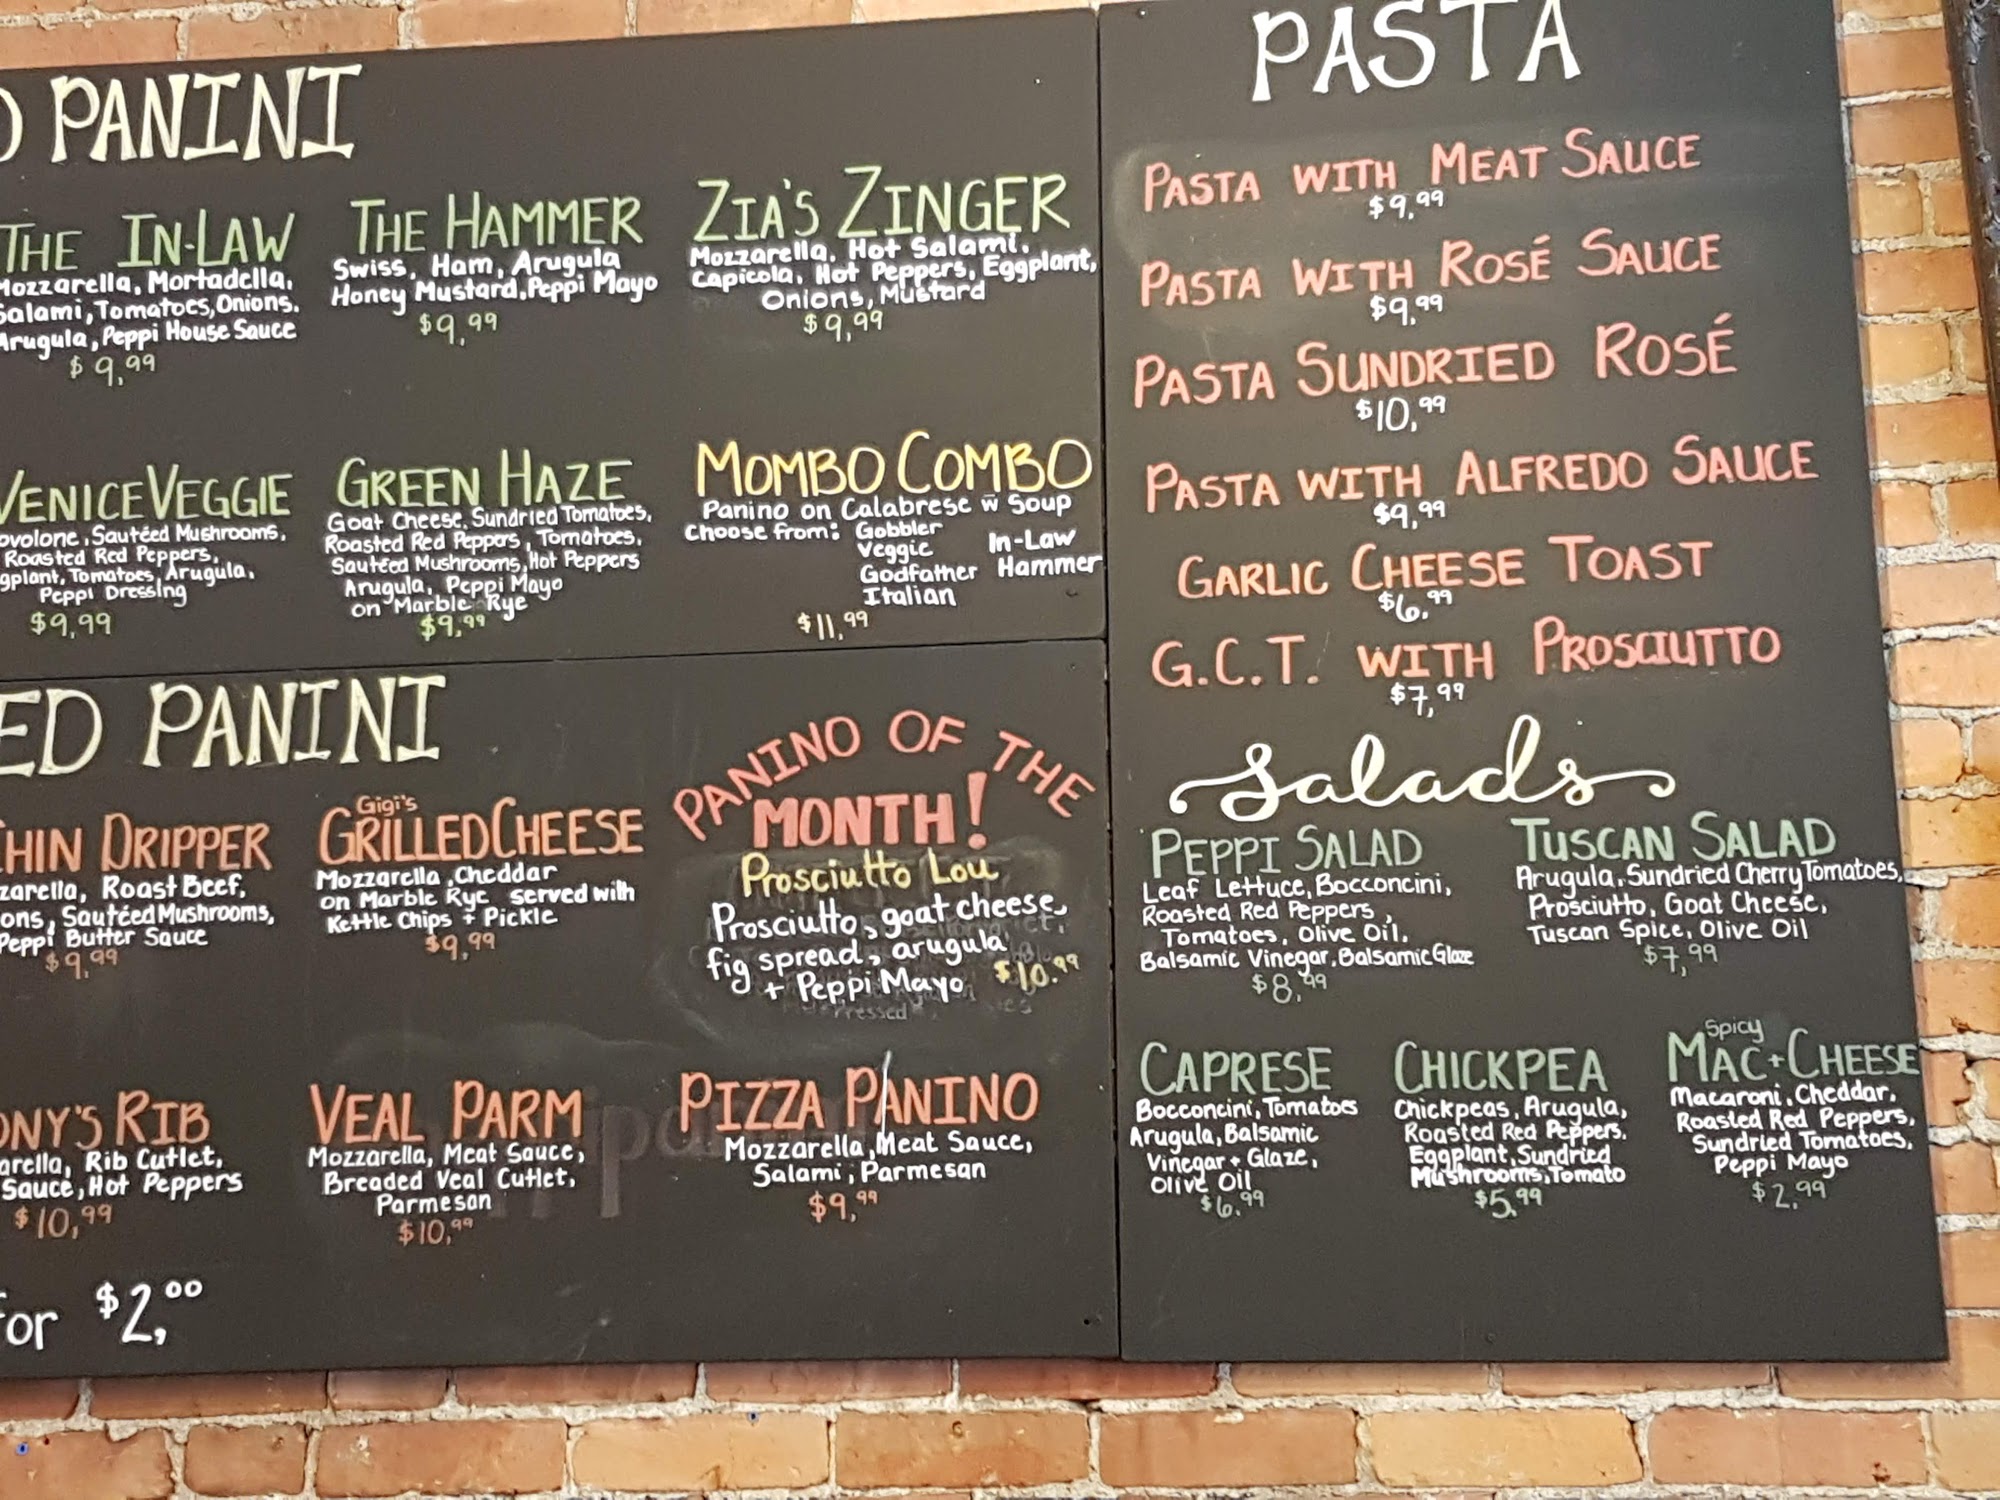 PANINI
THE IN-LAW
Mozzarella, Mortadella,
Salami, Tomatoes, Onions,
Arugula, Peppi House Sauce
$9.99
THE HAMMER
Swiss, Ham, Arugula
Honey Mustard, Peppi Mayo
$9.99
ZIA'S ZINGER
Mozzarella, Hot Salami,
Capicola, Hot Peppers, Eggplant,
Onions, Mustard
$9.99
VENICE VEGGIE
ovolone, Sautéed Mushrooms,
Roasted Red Peppers,
gplant, Tomatoes, Arugula,
Peppi Dressing
$9.99
GREEN HAZE
Goat Cheese, Sundried Tomatoes,
Roasted Red Peppers, Tomatoes,
Sautéed Mushrooms, Hot Peppers
Arugula, Peppi Mayo
on Marble Rye
$9.99
MOMBO COMBO
Panino on Calabrese w Soup
Choose from: Gobbler
Veggie In-Law
Godfather Hammer
Italian
$11.99
ED PANINI
HIN DRIPPER
zarella, Roast Beef,
ons, Sautéed Mushrooms,
Peppi Butter Sauce
$9.99
Gigi's
GRILLED CHEESE
Mozzarella, Cheddar
on Marble Rye served with
Kettle Chips + Pickle
$9.99
PANINO OF THE
MONTH!
Prosciutto Lou
Prosciutto, goat cheese,
fig spread, arugula
+ Peppi Mayo $10.99
ONY'S RIB
arella, Rib Cutlet,
Sauce, Hot Peppers
$10.99
VEAL PARM
Mozzarella, Meat Sauce,
Breaded Veal Cutlet,
Parmesan
$10.99
PIZZA PANINO
Mozzarella, Meat Sauce,
Salami, Parmesan
$9.99
for $2.00
PASTA
PASTA WITH MEAT SAUCE
$9.99
PASTA WITH ROSÉ SAUCE
$9.99
PASTA SUNDRIED ROSÉ
$10.99
PASTA WITH ALFREDO SAUCE
$9.99
GARLIC CHEESE TOAST
$6.99
G.C.T. WITH PROSCIUTTO
$7.99
Salads
PEPPI SALAD
Leaf Lettuce, Bocconcini,
Roasted Red Peppers,
Tomatoes, Olive Oil,
Balsamic Vinegar, Balsamic Glaze
$8.99
TUSCAN SALAD
Arugula, Sundried Cherry Tomatoes,
Prosciutto, Goat Cheese,
Tuscan Spice, Olive Oil
$7.99
CAPRESE
Bocconcini, Tomatoes
Arugula, Balsamic
Vinegar + Glaze,
Olive Oil
$6.99
CHICKPEA
Chickpeas, Arugula,
Roasted Red Peppers,
Eggplant, Sundried
Mushrooms, Tomato
$5.99
Spicy
MAC + CHEESE
Macaroni, Cheddar,
Roasted Red Peppers,
Sundried Tomatoes,
Peppi Mayo
$2.99